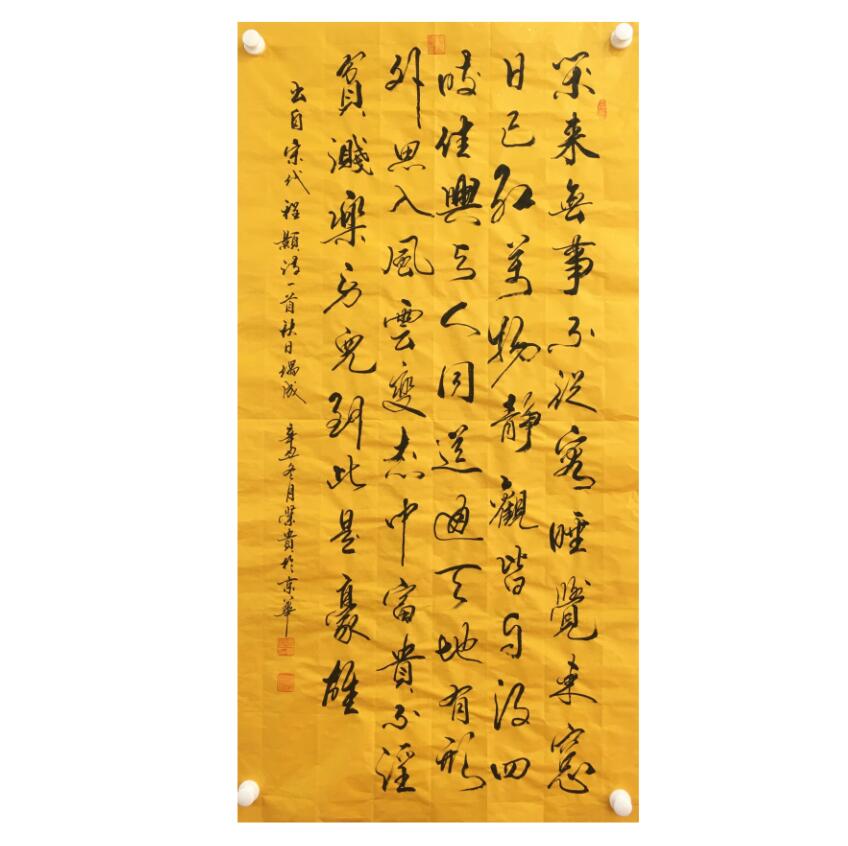 閑来無事不從容睡覺東窓
日已红萬物静觀皆自得四
時佳興与人同道通天地有形
外思入風雲變态中富貴不淫
貧濺樂男兒到此是豪雄
出自宋代程顥詩一首秋日偶成 辛丑冬月榮貴於京華